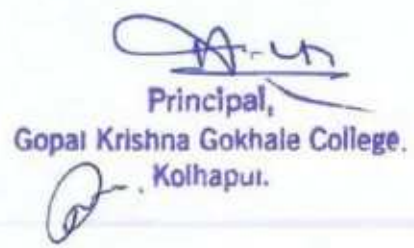 Principal,
Gopal Krishna Gokhale College.
Kolhapur.